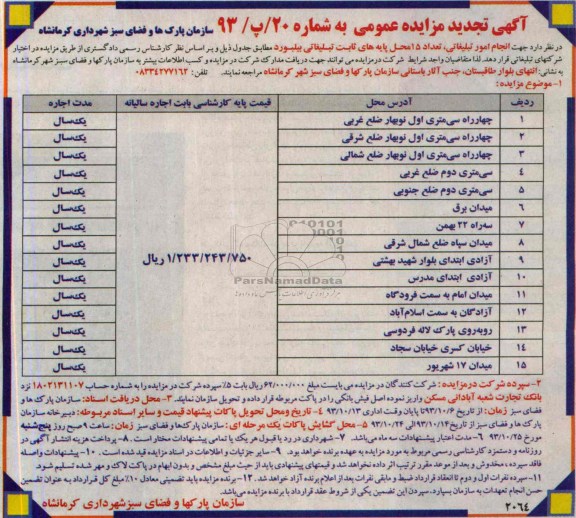 آگهی تجدید مزایده عمومی به شماره ۲۰/پ/ ۹۳ سازمان پارک ها و فضای سبز شهرداری کرمانشاه
در نظر دارد جهت انجام امور تبلیغاتی، تعداد ۱۵محل پایه های ثابت تبلیغاتی بیلبورد مطابق جدول ذیل و بر اساس نظر کارشناس رسمی دادگستری از طریق مزایده در اختیار
شرکتهای تبلیغاتی قرار دهد. لذا متقاضیان واجد شرایط شرکت در مزایده می توانند جهت دریافت مدارک شرکت در مزایده و کسب اطلاعات بیشتر به سازمان پارکها و فضای سبز شهر کرمانشاه
به نشانی: انتهای بلوار طاقبستان، جنب آثار باستانی سازمان پارکها و فضای سبز شهر کرمانشاه مراجعه نمایند. تلفن: ۰۸۳۳۴۲۷۷۱۶۲
۱-موضوع مزایده:
ردیف آدرس محل قیمت پایه کارشناسی بابت اجاره سالیانه مدت اجاره
۱ چهارراه سی‌متری اول نوبهار ضلع غربی یک‌سال
۲ چهارراه سی‌متری اول نوبهار ضلع شرقی یک‌سال
۳ چهارراه سی‌متری اول نوبهار ضلع شمالی یک‌سال
۴ سی‌متری دوم ضلع غربی یک‌سال
۵ سی‌متری دوم ضلع جنوبی یک‌سال
۶ میدان برق یک‌سال
۷ سه‌راه ۲۲ بهمن یک‌سال
۸ میدان سپاه ضلع شمال شرقی یک‌سال
۹ آزادی ابتدای بلوار شهید بهشتی ۱/۲۳۳/۲۴۳/۷۵۰ ریال یک‌سال
۱۰ آزادی ابتدای مدرس یک‌سال
۱۱ میدان امام به سمت فرودگاه یک‌سال
۱۲ آزادگان به سمت اسلام‌آباد یک‌سال
۱۳ روبه‌روی پارک لاله فردوسی یک‌سال
۱۴ خیابان کسری خیابان سجاد یک‌سال
۱۵ میدان ۱۷ شهریور یک‌سال
ParsNamadData
۲- سپرده شرکت درمزایده: شرکت کنندگان در مزایده می بایست مبلغ ۶۲/۰۰۰/۰۰۰ ریال بابت ۵٪ سپرده شرکت در مزایده را به شماره حساب ۱۸۰۲۱۳۱۱۰۷ نزد
بانک تجارت شعبه آبادانی مسکن واریز نموده اصل فیش بانکی را در پاکت مربوطه قرار داده و تحویل نمایند. ۳- محل دریافت اسناد: سازمان پارک ها و
فضای سبز زمان: از تاریخ ۹۳/۱۰/۶ تا پایان وقت اداری ۹۳/۱۰/۱۳ ۴- تاریخ ومحل تحویل پاکات پیشنهاد قیمت و سایر اسناد مربوطه: دبیرخانه سازمان
پارک ها و فضای سبز از تاریخ ۹۳/۱۰/۱۴ الی ۹۳/۱۰/۲۴ ۵- محل گشایش پاکات یک مرحله ای: سازمان پارک‌ها وفضای سبز زمان: ساعت ۹ صبح روز پنج‌شنبه
مورخ ۹۳/۱۰/۲۵ ۶- مدت اعتبار پیشنهادات سه ماه می‌باشد. ۷- شهرداری در رد یا قبول هر یک یا تمامی پیشنهادات مختار است. ۸- پرداخت هزینه انتشار آگهی در
روزنامه و دستمزد کارشناسی رسمی مربوط به مورد مزایده به عهده برنده خواهد بود. ۹- سایر جزئیات و اطلاعات در اسناد مزایده قید شده است. ۱۰- پیشنهادات واصله
فاقد سپرده، مخدوش و بعد از موعد مقرر ترتیب اثر داده نخواهد شد و قیمتهای پیشنهادی باید از حیث مبلغ مشخص و بدون ابهام در پاکت لاک و مهر شده تسلیم شود.
۱۱- سپرده نفرات اول و دوم تا انعقاد قرارداد ضبط و مابقی نفرات بعد از اعلام برنده آزاد خواهد شد. ۱۲- برنده مزایده باید تضمینی معادل ۱۰٪ مبلغ کل قرارداد به عنوان تضمین
حسن انجام تعهدات به سازمان بسپارد. سپردن این تضمین یکی از شروط عقد قرارداد با برنده مزایده می‌باشد.
۲۰۶۴ سازمان پارکها و فضای سبز شهرداری کرمانشاه